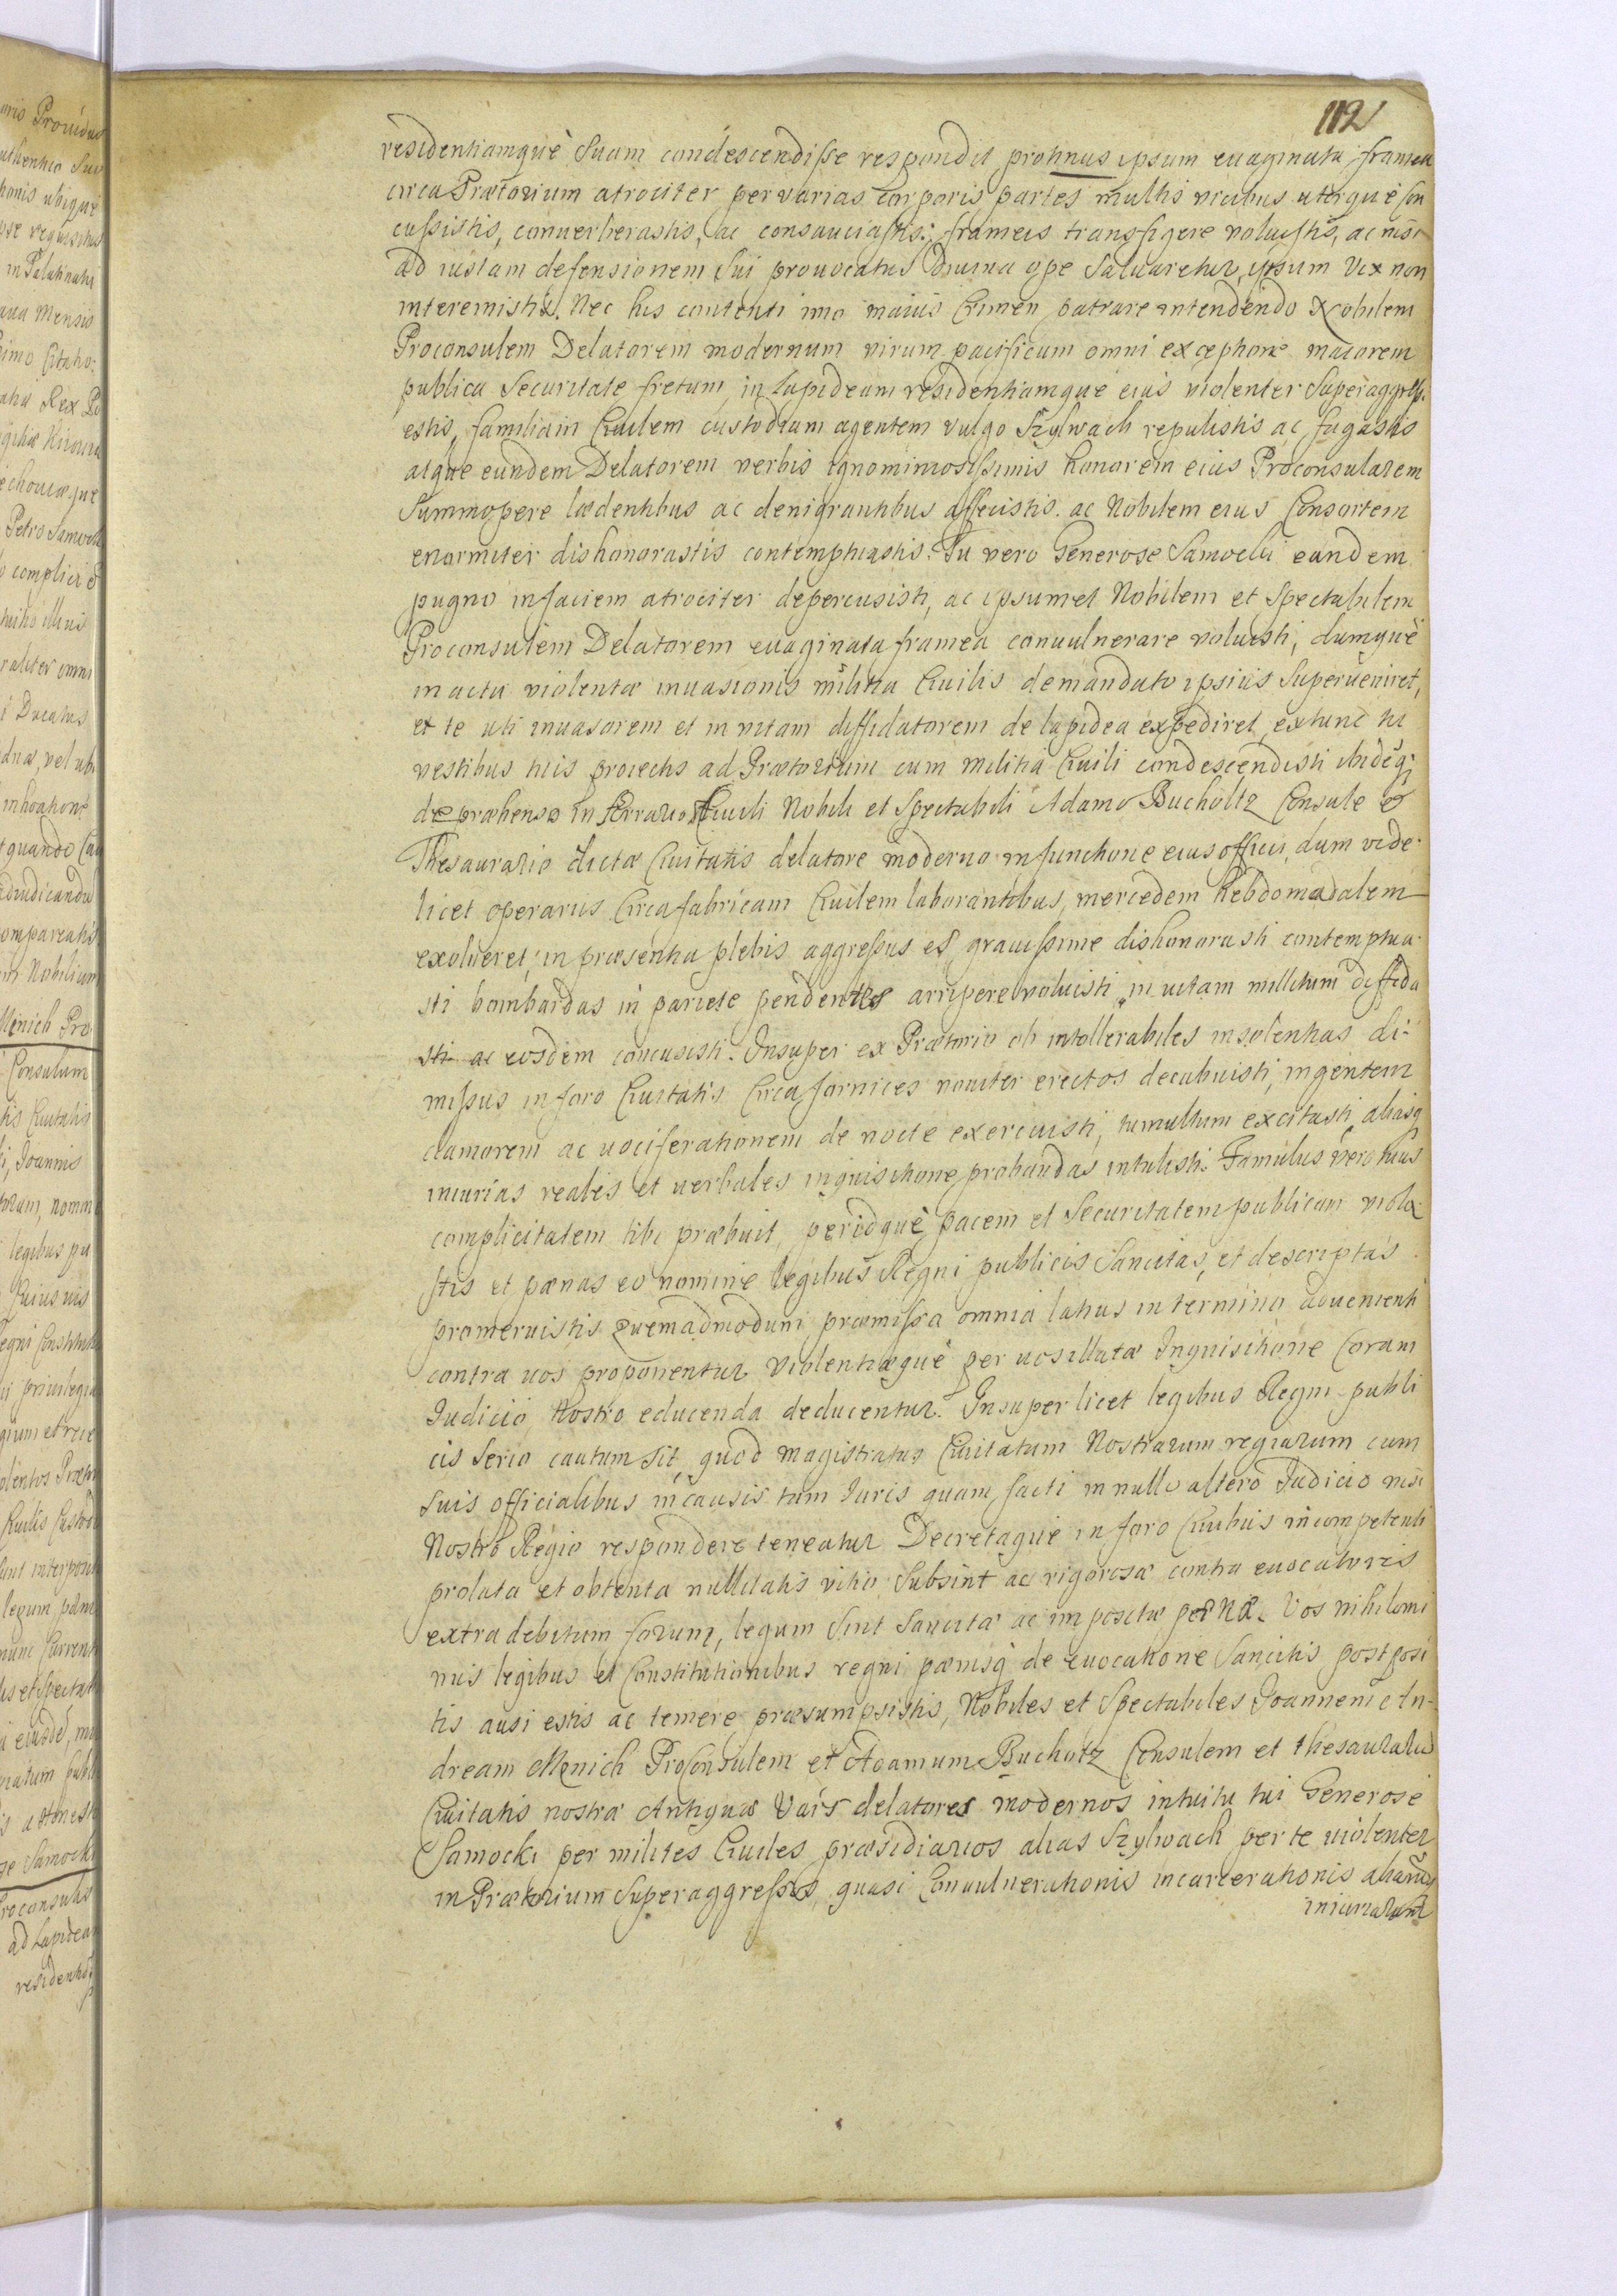 112
residentiamquè Suam condescendisse respondit protinus ipsum euaginata framea
circa Prætorium atrociter per varias corporis partes multis vicibus uterquè con
cussistis, conuerberastis, ac consauciastis, frameis transfigere voluistis, ac nisi
ad iustam defensionem Sui prouocatus Diuina ope Saluaretur, ipsum Vix non
interemistis. Nec his contenti imo maius Crimen patrare intendendo Nobilem
Proconsulem Delatorem modernum virum pacificum omni exceptione maiorem
publica Securitate fretum in Lapideam residentiamque eius violenter Superaggressi
estis, familiam Ciuilem custodiam agentem vulgo Szylwach repulistis ac fugastis
atque eundem Delatorem verbis ignominiosissimis honorem eius Proconsularem
Summopere lædentibus ac denigrantibus affecistis. ac Nobilem eius Consortem
enormiter dishonorastis contemptuastis. Tu vero Generose Samocki eandem
pugno in faciem atrociter depercusisti, ac ipsummet Nobilem et Spectabilem
Proconsulem Delatorem euaginata framea conuulnerare voluisti, dumquè
in actu violentæ inuasionis militia Ciuilis demandato ipsius Superueniret,
et te uti inuasorem et in vitam diffidatorem de lapidea expediret, extunc tu
vestibus tuis proiectis ad Prætorium cum militia Ciuili condescendisti ibidēq;
depræhenso in Ærrario Ciuili Nobili et Spectabili Adamo Bucholtz Consule et
Thesaurario dictæ Ciuitatis delatore moderno in functione eius officii, dum vide
licet operariis Circa fabricam Ciuilem laborantibus, mercedem hebdomadalem
exolueret, in præsentia plebis aggressus es grauissime dishonorasti contemptua
sti bombardas in pariete pendentes arripere voluisti, in uitam militum diffida
sti ac eosdem concusisti. Insuper ex Prætorio ob intollerabiles insolentias di
missus in foro Ciuitatis Circa fornices nouiter erectos decubuisti, ingentem
clamorem ac uociferationem de nocte exercuisti, tumultum excitasti, aliasq
iniurias reales et uerbales inquisitione probandas intulisti. Famulus vero tuus
complicitatem tibi præbuit, peridquè pacem et Securitatem publicam viola
stis et pænas eo nomine legibus Regni publicis Sancitas, et descriptas
promeruistis quemadmodum præmissa omnia latius in termino adueniente
contra uos proponentur violentiæquè per uos illatæ Inquisitione Coram
Iudicio Nostro educenda deducentur. Insuper licet legibus Regni publi
cis Serio cautum sit, quod magistratus Ciuitatum Nostrarum regiarum cum
suis officialibus in causis tam Iuris quam facti in nullo altero Iudicio nisi
Nostro Regio respondere teneatur Decretaque in foro Ciuibus incompetenti
prolata et obtenta nullitatis vitio Subsint ac rigorosæ contra euocatores
extra debitum forum, legum Sint Sancitæ ac impositæ pœnæ. Vos nihilomi
nus legibus et Constitutionibus regni pænisq de euocatione Sancitis postposi
tis ausi estis ac temere præsumpsistis, Nobiles et Spectabiles Joannem An-
dream Menich ProConsulem et Adamum Bucholtz Consulem et thesaurariū
Ciuitatis nostræ Antiquæ Vars delatores modernos intuitu tui Generose
Samocki per milites Ciuiles præsidiarios alias Szylwach per te violenter
in Prætorium Superaggressos, quasi Conuulnerationis incarcerationis aliarūq
iniuriarum